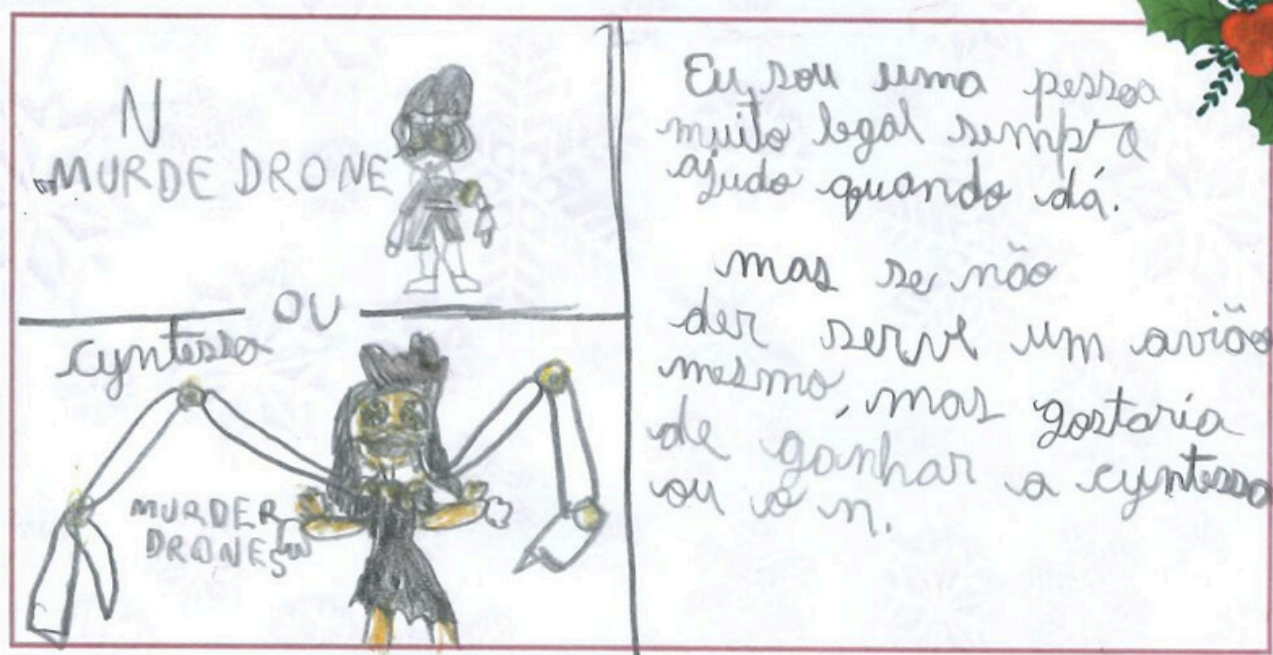 N
MURDE DRONE
OU
cyntessa
MURDER
DRONES
Eu sou uma pessoa
muito legal sempre
ajudo quando dá.
mas se não
der serve um avião
mesmo, mas gostaria
de ganhar a cyntessa
ou o n.